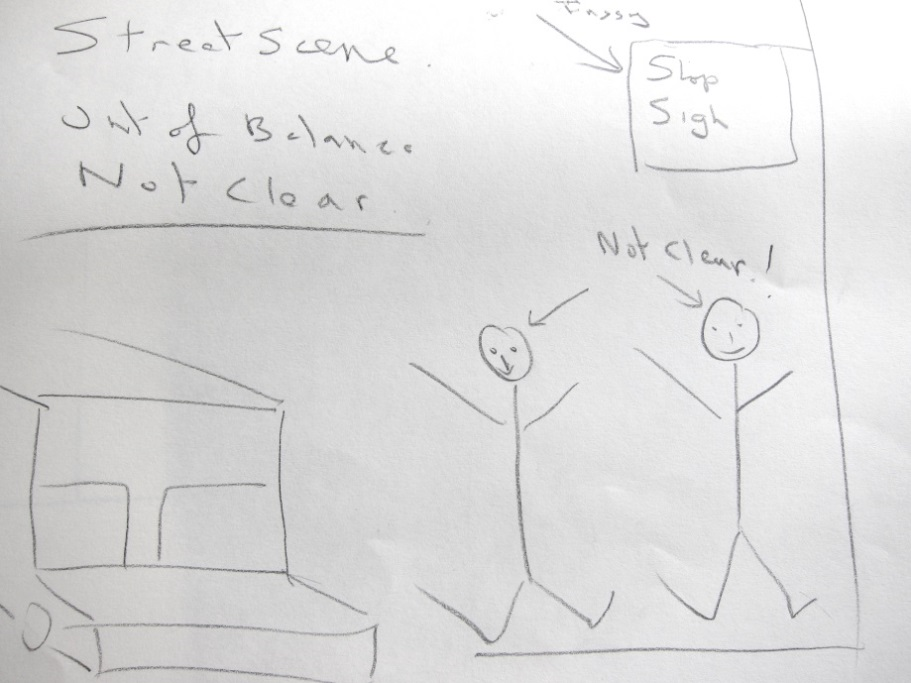 Street Scene.
Out of Balance
Not Clear.
Stop
Sigh
Not Clear.!